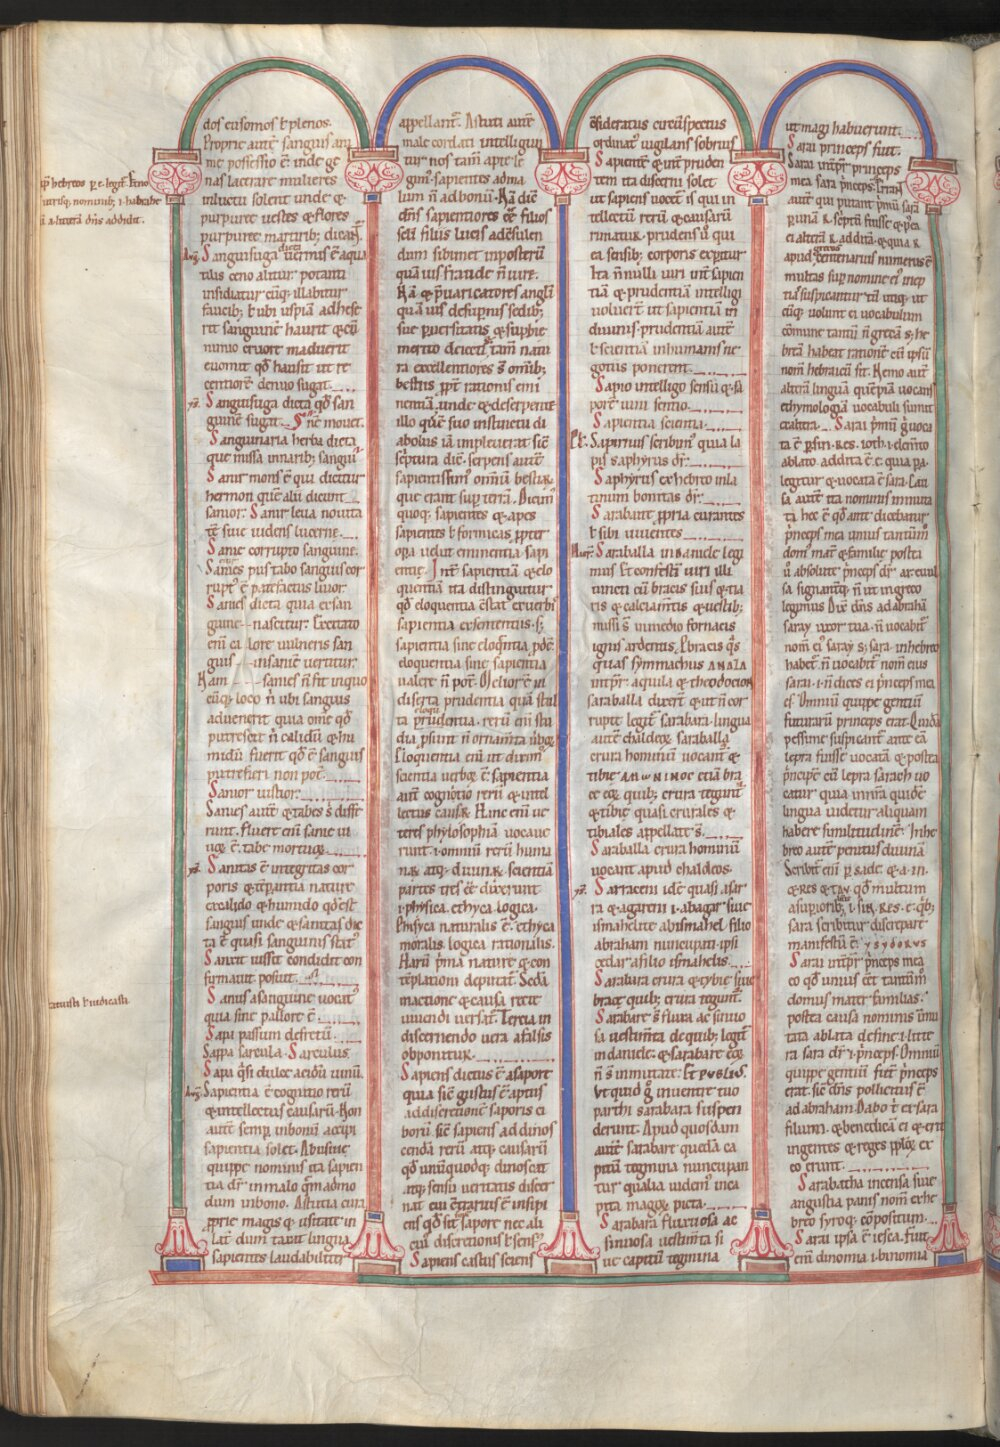 dos eusomos ł plenos.
Proprie autē sanguis ani
me possessio ē unde ge
nas lacerare mulieres
in luctu solent unde &
purpuree uestes & flores
purpuree martirib; dicant̄.
Sanguisuga dicta uermis ē aqua
tilis
insidiatur cūq; illabitur
faucib; ł ubi uspiā adhese
rit sanguinē haurit & cū
nimio cruore maduerit
euomit qđ hausit ut re
centiorē denuo sugat.
Sanguisuga dicta qđ san
guinē sugat.
Sanguinaria herba dicta
que missa innarib;
Sanir mons ē qui dicitur
hermon quē alii dicunt
sanior. Sanir leua nouita
tē siue uidens lucerne.
Sanie corrupto sanguine.
Sanies pus tabo sanguis cor
ruptꝰ ē
Sanies dicta quia ex san
guine nascitur. Excitato
enī calore uulneris san
guis insaniē uertitur.
Nam sanies n̄ fit in quo
cūq; loco n̄ ubi sanguis
aduenerit quia om̄e qđ
putrescit n̄ calidū & hu
midū fuerit qđ ē sanguis
putrefieri non pot̄.
Sanior iustior.
Sanies autē & tabes s̄ diffe
runt. Fluere enī sanie ui
uoꝝ ē tabe mortuoꝝ
Sanitas ē integritas cor
poris & tēperantia nature
ex calido & humido qđ est
sanguis unde & sanitas dic
ta ē quasi sanguinis statꝰ
Sanxit iussit condidit con
firmauit. posuit.
Sanus a sanguine uocatꝰ
quia sine pallore ē
Sapi passum defretū.
Sappa sarcula. Sarculus.
Sapa q̄si dulce acidū uinū.
Sapientia ē cognitio rerū
& intellectus causarū. Non
autē semp in bonū accipi
sapientia solet. Abusiue
quippe nominis ita sapien
tia dr̄ in malo quēadmo
dum in bono. Astutia enī
proprie magis & usitate in
lat̄ dum taxat lingua
sapientes laudabiliter
appellant̄. Astuti autē
male cordati intelligun
tur nos tam̄ aperte le
gimꝰ sapientes ad ma
lum n̄ ad bonū. Nā dīc
dn̄s sapientiores eē filios
seclī filiis lucis ad ēsulen
dum sibimet in posterū
quā uis fraude n̄ iure.
Nā & p̄uaricatores angl̄i
quā uis de supnis sedib;
sue puersitatis & supbie
merito deiecti tam̄ natu
ra excellentiores s̄ om̄ib;
bestiis propt rationis emi
nentiā unde & de serpente
illo quē suo instinctu di
abolus iā impleuerat sic
scptura dīc. serpens autē
sapientissimꝰ omīū bestiaꝝ
que erant sup terrā. Dicim
quoq; sapientes & apes
sapientes ł formicas ppter
opa uelut eminentia sapi
entię. Int sapientiā & elo
quentiā ita distinguitur
qđ eloquentia ē stat ex uerbis
sapientia ex sententiis. s;
sapientia sine eloq̄ntia pdē
eloquentia sine sapientia
ualere n̄ pot̄. Melior ē in
diserta prudentia quā stul
ta prudentia. rerū enī stu
dia psunt n̄ ornamta ūboꝝ
Eloquentia enī ut diximꝰ
scientia uerboꝝ ē. sapientia
autē cognotio rerū & intel
lectus causaꝝ. Hanc enī ue
teres phylosophiā uocaue
runt. i. omniū rerū huma
naꝝ atq; diuinaꝝ scientiā
partes tres eē dixerunt
i. physica. ethyca. logica.
Phisyca naturalis ē. ethyca
moralis. logica rationalis.
Harū pma nature & con
templationi deputat̄. Secda
inactione & causa recte
uiuendi uersat̄. Tercia in
discernendo uera a falsis
obponitur.
Sapiens dictus ē a sapore
quia sic gustus ē aptus
ad discretionē saporis ci
borū sic sapiens ad dinos
cendā rerū atq; causarū
qđ unūquodq; dinoscat
atq; sensu ueritatis discer
nat cui ētrarius ē insipi
ens qđ sit sapore nec ali
cuiꝰ discretionis ł sensꝰ
Sapiens castus sciens
ēsideratus circūspectus
ordinatꝰ uigilans sobrius
Sapientē & int pruden
tem ita discerni solet
ut sapiens uocet̄ is qui in
tellectū rerū & causarū
rimatur. prudens ū qui
ea sensib; corporis expitur
Ita n̄ nulli uiri int sapien
tiā & prudentiā intelligi
uoluert ut sapientiā in
diuinis. prudentiā autē
ł scientiā in humanis ne
gotiis ponerent.
Sapio intelligo sensū & sa
porē uini sentio.
Sapientia scientia.
Sapirius scribunt̄ quia la
pis saphyrus dr̄.
Saphyrus ex hebreo in la
tinum bonitas dr̄.
Sarabaitę ppria curantes
ł sibi uiuentes.
Saraballa in daniele legi
mus Et confestī uiri illi
uincti cū bracis suis & tia
ris & calciamtis & uestib;
missi s̄ in medio fornacis
ignis ardentis. P bracis q̄s
quas symmachus
intpr̄. aquila & theodocion
saraballa dixert & ut n̄ cor
rupte legit̄ sarabara. lingua
autē chaldeoꝝ saraballa
crura hominū uocant̄ &
tibie etiā bra
ce eoꝝ quib; crura tegunt̄
& tibię quasi crurales &
tibiales appellate s̄.
Saraballa crura hominū
uocant apud chaldeos.
Sarraceni idē quasi asar
ra & agareni i. ab agar siue
ismahelite ab ismahel filio
abraham nuncupati. ipsi
cedar a filio ismahelis.
Sarabara crura & tybię siue
bracę quib; crura tegunt̄.
Sarabare s̄ fluxa ac sinuo
sa uestimta de quib; legit̄
in daniele. & sarabarę eoꝝ
n̄ s̄ inmutate. Et publiꝰ.
Ut quid ḡ in uentre tuo
parthi sarabara suspen
derunt. Apud quosdam
autē sarabare quedā ca
pitū tegmina nuncupan
tur qualia uidemꝰ in ca
pita magoꝝ picta.
Sarabara fluxuosa ac
sinuosa uestimta si
ue capitū tegmina
ut magi habuerunt.
Sarai princeps fuit.
Sarai intpr̄ princeps
mea sara pnceps.
autē qui putant pmū sarā
p unā r scptū fuisse & postea
ei alterā r additā. & quia r
apud grecos centenarius numerus ē
multas sup nomine eiꝰ inep
tias suspicantur
cūq; uolunt ei uocabulum
cōmune tantū n̄ grecā s; he
breā habeat rationē cū ipsū
nom̄ hebraicū sit. Nemo autē
altera linguā quēpiā uocans
ethymologiā uocabuli sumit
ex altera. Sarai pmū g̊ uoca
ta ē p sin. res. ioth. i. elemto
ablato. addita ē. e. quia p a
legitur & uocata ē sara. Cau
sa autē ita nominis inmuta
ta hec ē qđ ante dicebatur
pnceps mea unius tantūm
domꝰ mat̄ & familię. postea
ū absolute pnceps dr̄
legimus Dix dn̄s ad abrahā
saray uxor tua. n̄ uocabit̄
nom̄ eiꝰ saray s; sara. in hebreo
habet̄. n̄ uocabit̄ nom̄ eius
sarai. i. n̄ dices ei pnceps mea
es. Omniū quippe gentiū
futurarū princeps erat. Quidā
pessime suspicant̄ ante eā
lepra fuisse uocatā & postea
pncipē cū lepra sarath uo
catur quia in nr̄a quidē
lingua uidetur aliquam
habere similitudinē. In he
breo autē penitus diuersā
Scribit̄ enī
& res & tau. qđ multum
a supiorib; i. sin. res. e. qb;
sara scribitur discrepare
manifestū ē. ysydorus
Sarai intpr̄ pnceps mea
eo qđ unius eēt tantūm
domus mater familias.
postea causa nominis īmu
tata ablata de fine. i. litte
ra sara dr̄. i. pnceps. Omniū
quippe gentiū fut̄ pnceps
erat. sic dn̄s pollicitus ē
ad abraham. Dabo t̄ ex sara
filium. & benedicā ei & erit
in gentes & reges pploꝝ ex
eo erunt.
Sarabatha incensa siue
angustia panis nom̄ ex he
breo syroq; cōpositum.
Sarai ipsa ē iesca. fuit
enī dinomia. i. binomia